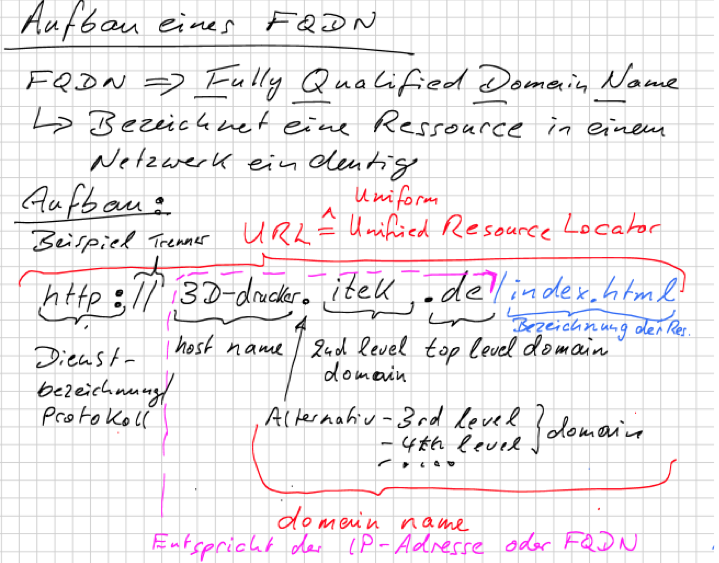 Aufbau eines FQDN
FQDN => Fully Qualified Domain Name
↳ Bezeichnet eine Ressource in einem
Netzwerk eindeutig
Aufbau:
Uniform
Beispiel Trenner URL ≙ Unified Resource Locator
http:// 3D-drucker. itek .de/index.html
Bezeichnung der Res.
Dienst-
bezeichnung/
Protokoll
host name
2nd level
domain
top level domain
Alternativ - 3rd level
- 4th level
- .....
} domain
domain name
Entspricht der IP-Adresse oder FQDN